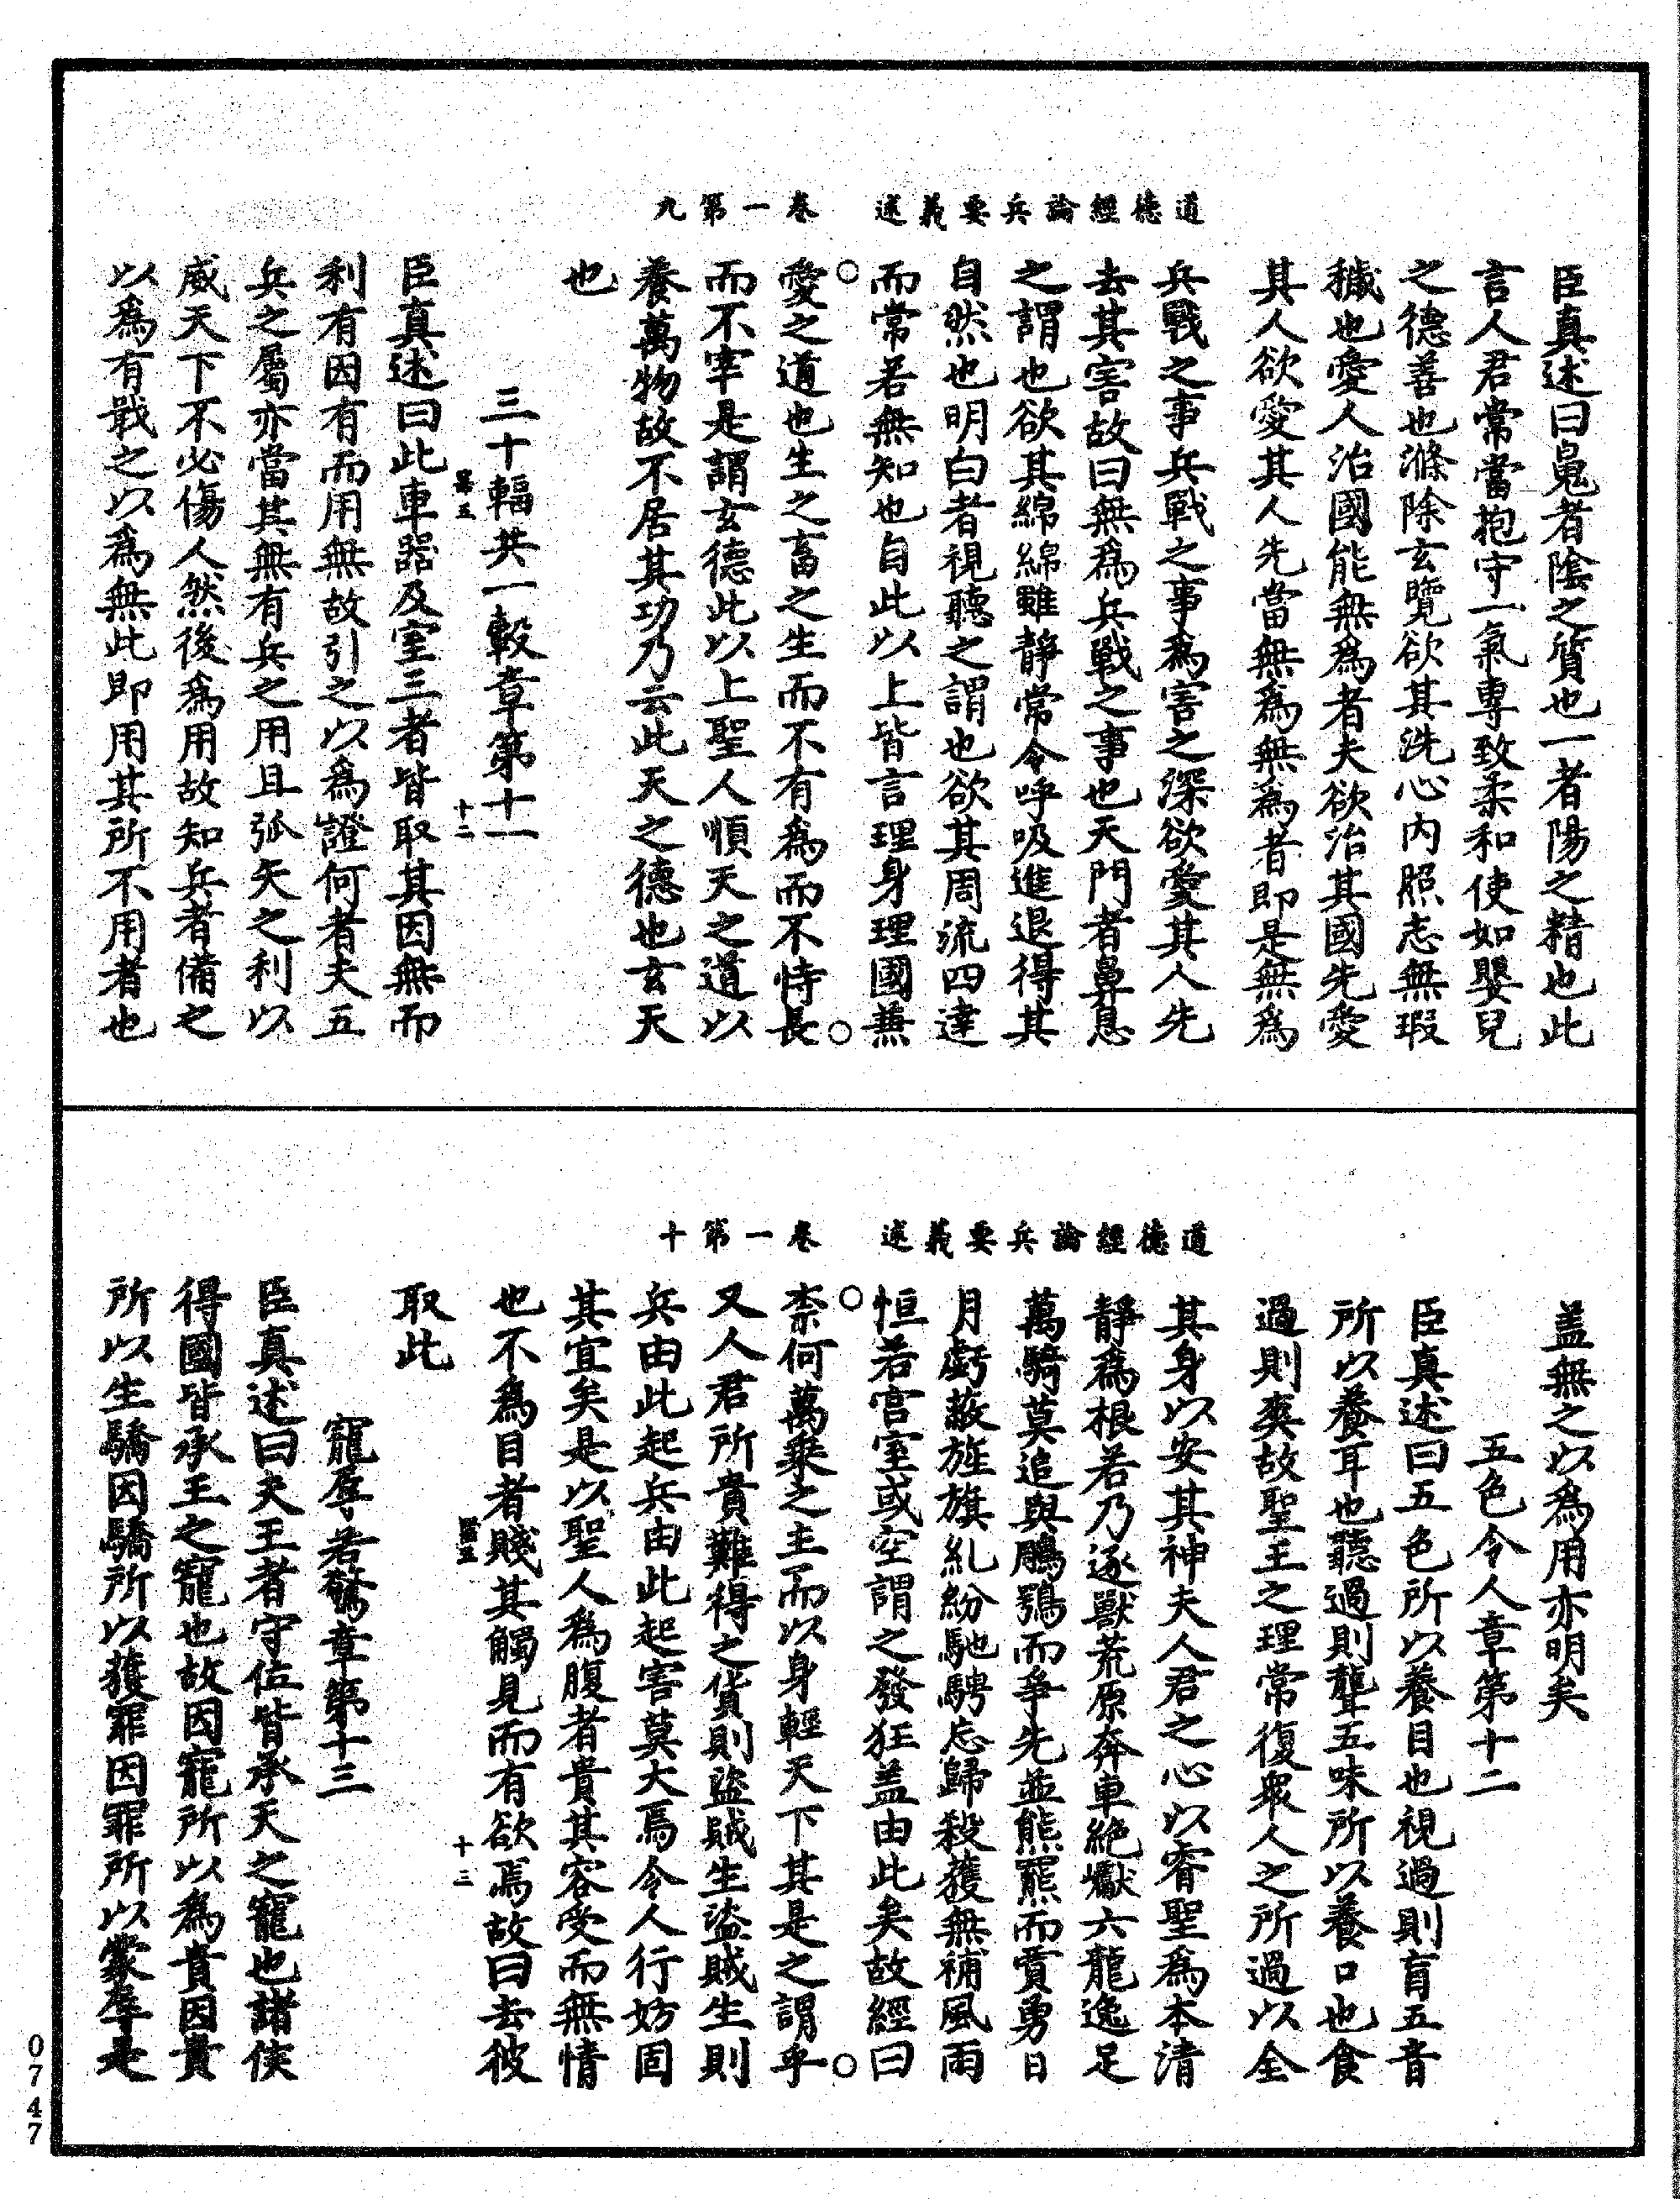 道德經論兵要義述　卷一第九
臣真述曰䰟者陰之質也一者陽之精也此
言人君常當抱守一氣專致柔和使如嬰兒
之德善也滌除玄覽欲其洗心內照志無瑕
穢也愛人治國能無為者夫欲治其國先愛
其人欲愛其人先當無為無為者即是無為
兵戰之事兵戰之事為害之深欲愛其人先
去其害故曰無為兵戰之事也天門者鼻息
之謂也欲其綿綿雖靜常令呼吸進退得其
自然也明白者視聽之謂也欲其周流四達
而常若無知也自此以上皆言理身理國兼
愛之道也生之畜之生而不有為而不恃長
而不宰是謂玄德此以上聖人順天之道以
養萬物故不居其功乃云此天之德也玄天
也
三十輻共一轂章第十一
十二
臣真述曰此車器及室三者皆取其因無而
利有因有而用無故引之以為證何者夫五
兵之屬亦當其無有兵之用且弧矢之利以
威天下不必傷人然後為用故知兵者備之
以為有戢之以為無此即用其所不用者也
道德經論兵要義述　卷一第十
盖無之以為用亦明矣
五色令人章第十二
臣真述曰五色所以養目也視過則盲五音
所以養耳也聽過則聾五味所以養口也食
過則爽故聖王之理常復眾人之所過以全
其身以安其神夫人君之心以睿聖為本清
靜為根若乃逐獸荒原奔車絶巘六龍逸足
萬騎莫追與鵰鶚而爭先並熊羆而賈勇日
月虧蔽旌旗糺紛馳騁忘歸殺獲無補風雨
恒若宮室或空謂之發狂盖由此矣故經曰
柰何萬乘之主而以身輕天下其是之謂乎
又人君所貴難得之貨則盜賊生盜賊生則
兵由此起兵由此起害莫大焉令人行妨固
其宜矣是以聖人為腹者貴其容受而無情
也不為目者賤其觸見而有欲焉故曰去彼
十三
取此
寵辱若驚章第十三
臣真述曰夫王者守位皆承天之寵也諸侯
得國皆承王之寵也故因寵所以為貴因貴
所以生驕因驕所以獲罪因罪所以蒙辱是
0747